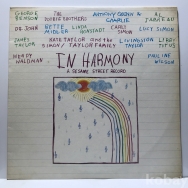 GEORGE BENSON
THE DOOBIE BROTHERS
ANTHONY CROWN & CHARLIE
AL JARREAU
DR. JOHN
BETTE MIDLER
LINDA RONSTADT
CARLY SIMON
LUCY SIMON
JAMES TAYLOR
KATE TAYLOR and the SIMON/TAYLOR FAMILY
LIVINGSTON TAYLOR
LIBBY TITUS
WENDY WALDMAN
PAULINE WILSON
IN HARMONY
A SESAME STREET RECORD